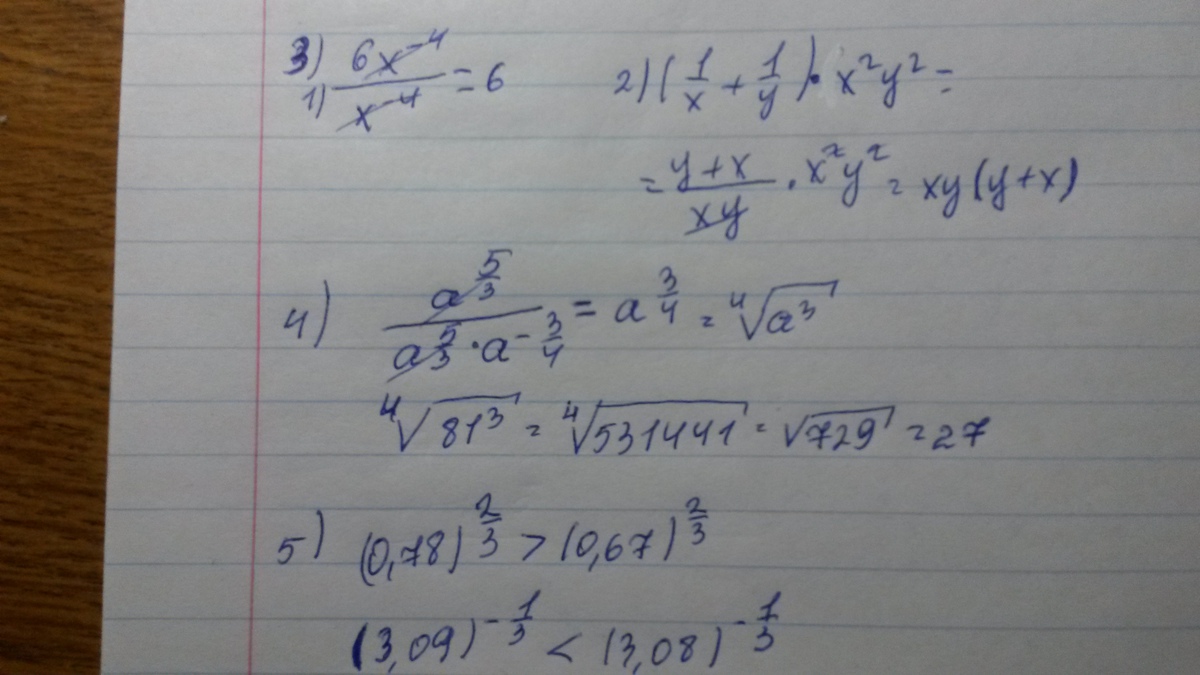 3) 1) 6x⁻⁴ / x⁻⁴ = 6
2) (1/x + 1/y) · x²y² =
= (y+x)/(xy) · x²y² = xy(y+x)
4) a^(5/3) / (a^(5/3) · a^(-3/4)) = a^(3/4) = ⁴√(a³)
⁴√(81³) = ⁴√(531441) = √(729) = 27
5) (0,78)^(2/3) > (0,67)^(2/3)
(3,09)^(-1/3) < (3,08)^(-1/3)